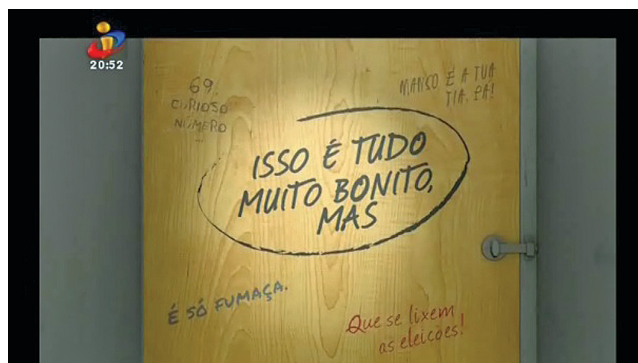 20:52
69.
CURIOSO
NÚMERO
MANSO É A TUA
TIA, PÁ!
ISSO É TUDO
MUITO BONITO,
MAS
É SÓ FUMAÇA.
Que se lixem
as eleições!